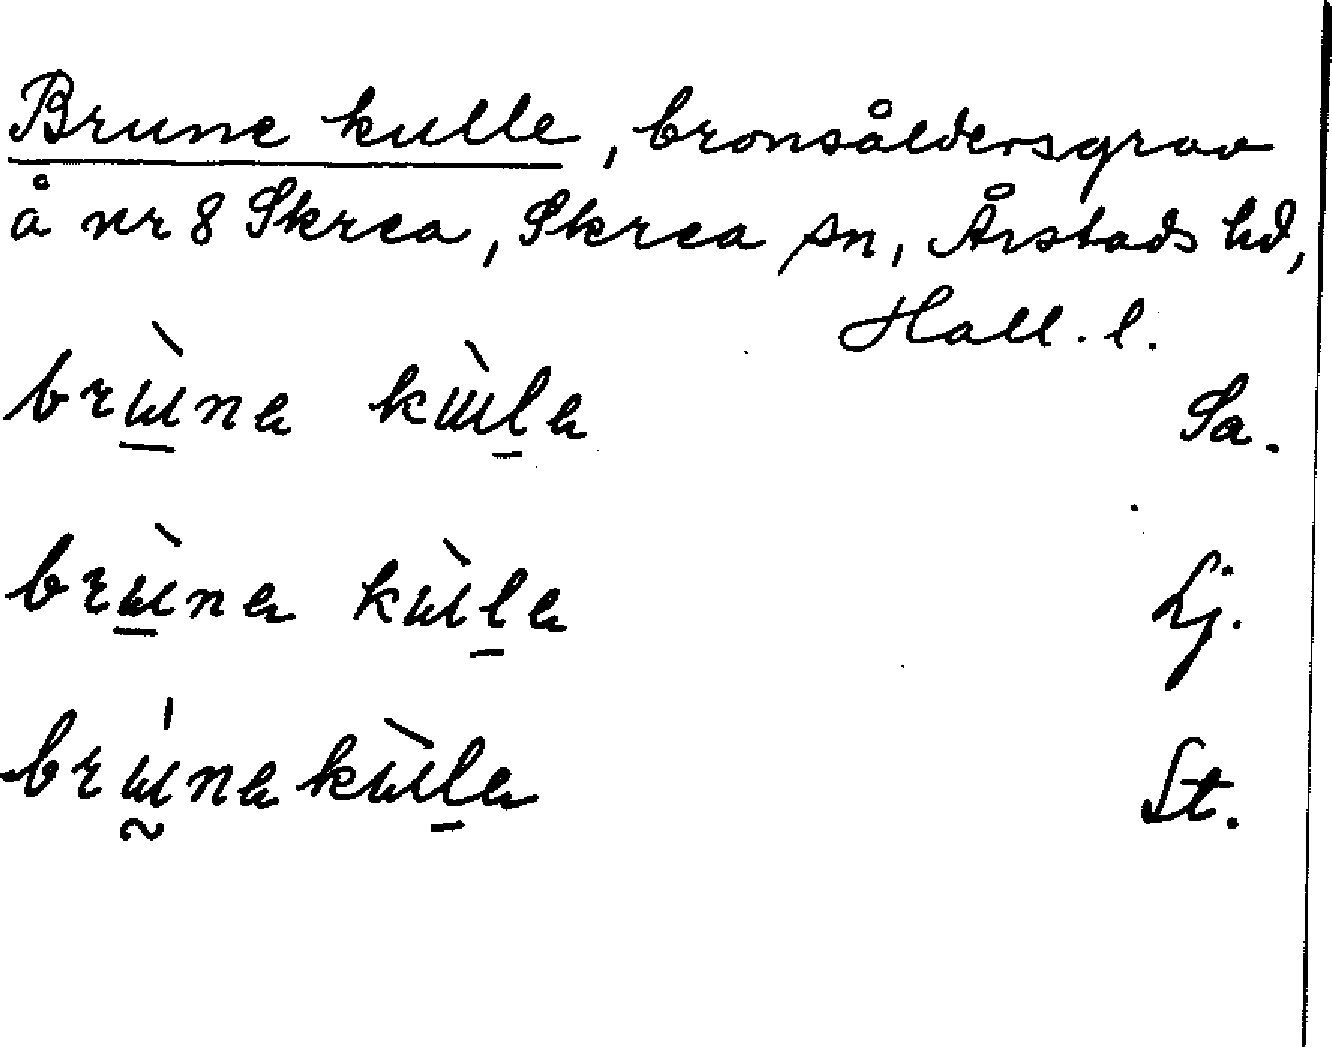 Brune kulle, bronsåldersgrav
å nr 8 Skrea, Skrea sn, Årstads hd,
Hall. l.
brɯ̀na kɯ̀la Sa.
brɯ̀na kɯ̀la Lj.
brɯ́nakɯ̀la St.